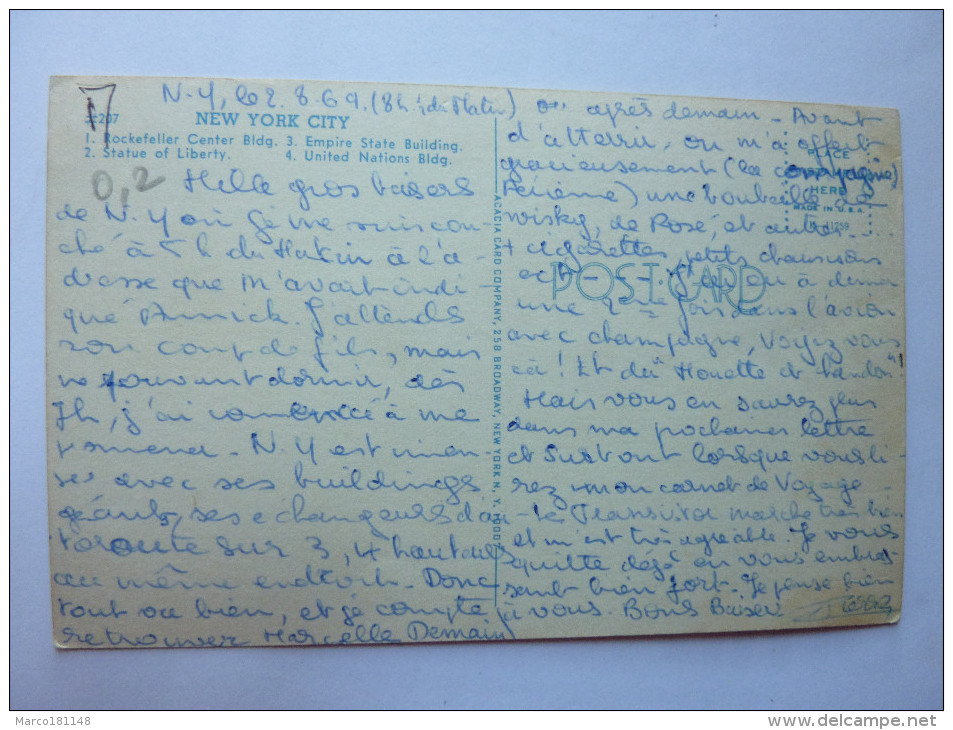 N-Y, le 2.8.69. (8h ½ du Matin)
32207 NEW YORK CITY
1. Rockefeller Center Bldg. 3. Empire State Building.
2. Statue of Liberty. 4. United Nations Bldg.
0,2
Mille gros baisers
de N.Y où je me suis cou-
ché à 5 h du Matin à l'a-
dresse que m'avait indi-
qué Annick. J'attends
son coup de fil, mais
ne pouvant dormir, dès
7h, j'ai commencé à me
promener. N.Y est immen-
se avec ses buildings
géants, ses echangeurs d'au-
toroute sur 3, 4 hauteurs
au même endroit. Donc
tout va bien, et je compte
retrouver Marcelle Demain
ou après demain - Avant
d'atterrir, on m'a offert
gracieusement (la compagnie
Aérienne) une bouteille de
wisky, de Rosé, et autres
+ cigarettes, petits chaussons
ect - J'ai eu à dîner
une 2ème fois dans l'avion
avec champagne, Voyez vous
ça! Et du "Mouette et Chandon"!
Mais vous en saurez plus
dans ma prochaine lettre
et surtout lorsque vous li-
rez mon carnet de Voyage -
Le Transistor marche très bien
et m'est très agréable. Je vous
quitte déjà en vous embras-
sant bien fort. Je pense bien
à vous. Bons Baisers
PLACE
HERE
MADE IN U.S.A.
11259
POST CARD
ACACIA CARD COMPANY, 258 BROADWAY, NEW YORK N. Y. 10007
Marco181148
www.delcampe.net